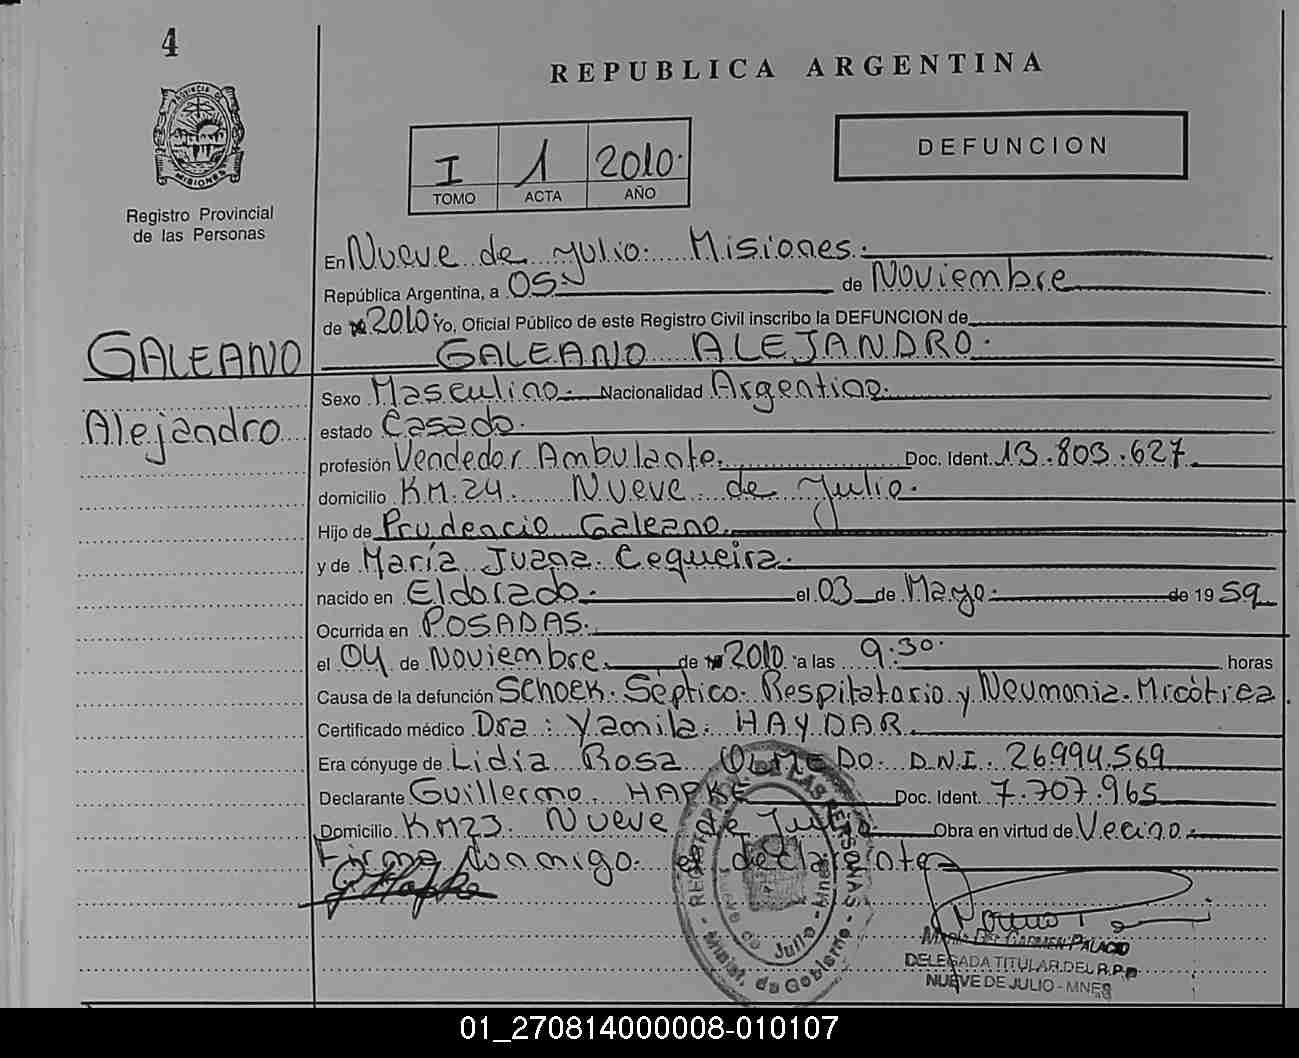 4
REPUBLICA ARGENTINA
PROVINCIA DE
MISIONES
Registro Provincial
de las Personas
I 1 2010.
TOMO ACTA AÑO
DEFUNCION
En Nueve de Julio. Misiones.
República Argentina, a 05. de Noviembre
de 2010 Yo, Oficial Público de este Registro Civil inscribo la DEFUNCION de
GALEANO
Alejandro
GALEANO ALEJANDRO.
Sexo Masculino. Nacionalidad Argentino.
estado Casado.
profesión Vendedor Ambulante. Doc. Ident. 13.803.627.
domicilio KM.24. Nueve de Julio.
Hijo de Prudencio Galeano
y de María Juana Cequeira.
nacido en Eldorado. el 03 de Mayo. de 19 59
Ocurrida en POSADAS.
el 04 de Noviembre. de 2010 a las 9.30. horas
Causa de la defunción Schoek. Séptico. Respitatorio y Neumonia. Micótica.
Certificado médico Dra: Yamila. HAYDAR.
Era cónyuge de Lidia Rosa OLMEDO. D.N.I. 26.994.569
Declarante Guillermo HAPKE Doc. Ident. 7.707.965
Domicilio KM23. Nueve de Julio Obra en virtud de Vecino.
Firma conmigo el declarante
G Hapke
MARIA DEL CARMEN PALACIO
DELEGADA TITULAR DEL R.P.P
NUEVE DE JULIO - MNES
REGISTRO DE LAS PERSONAS - Minist. de Gobierno
Nueve de Julio - Mnes
01_270814000008-010107